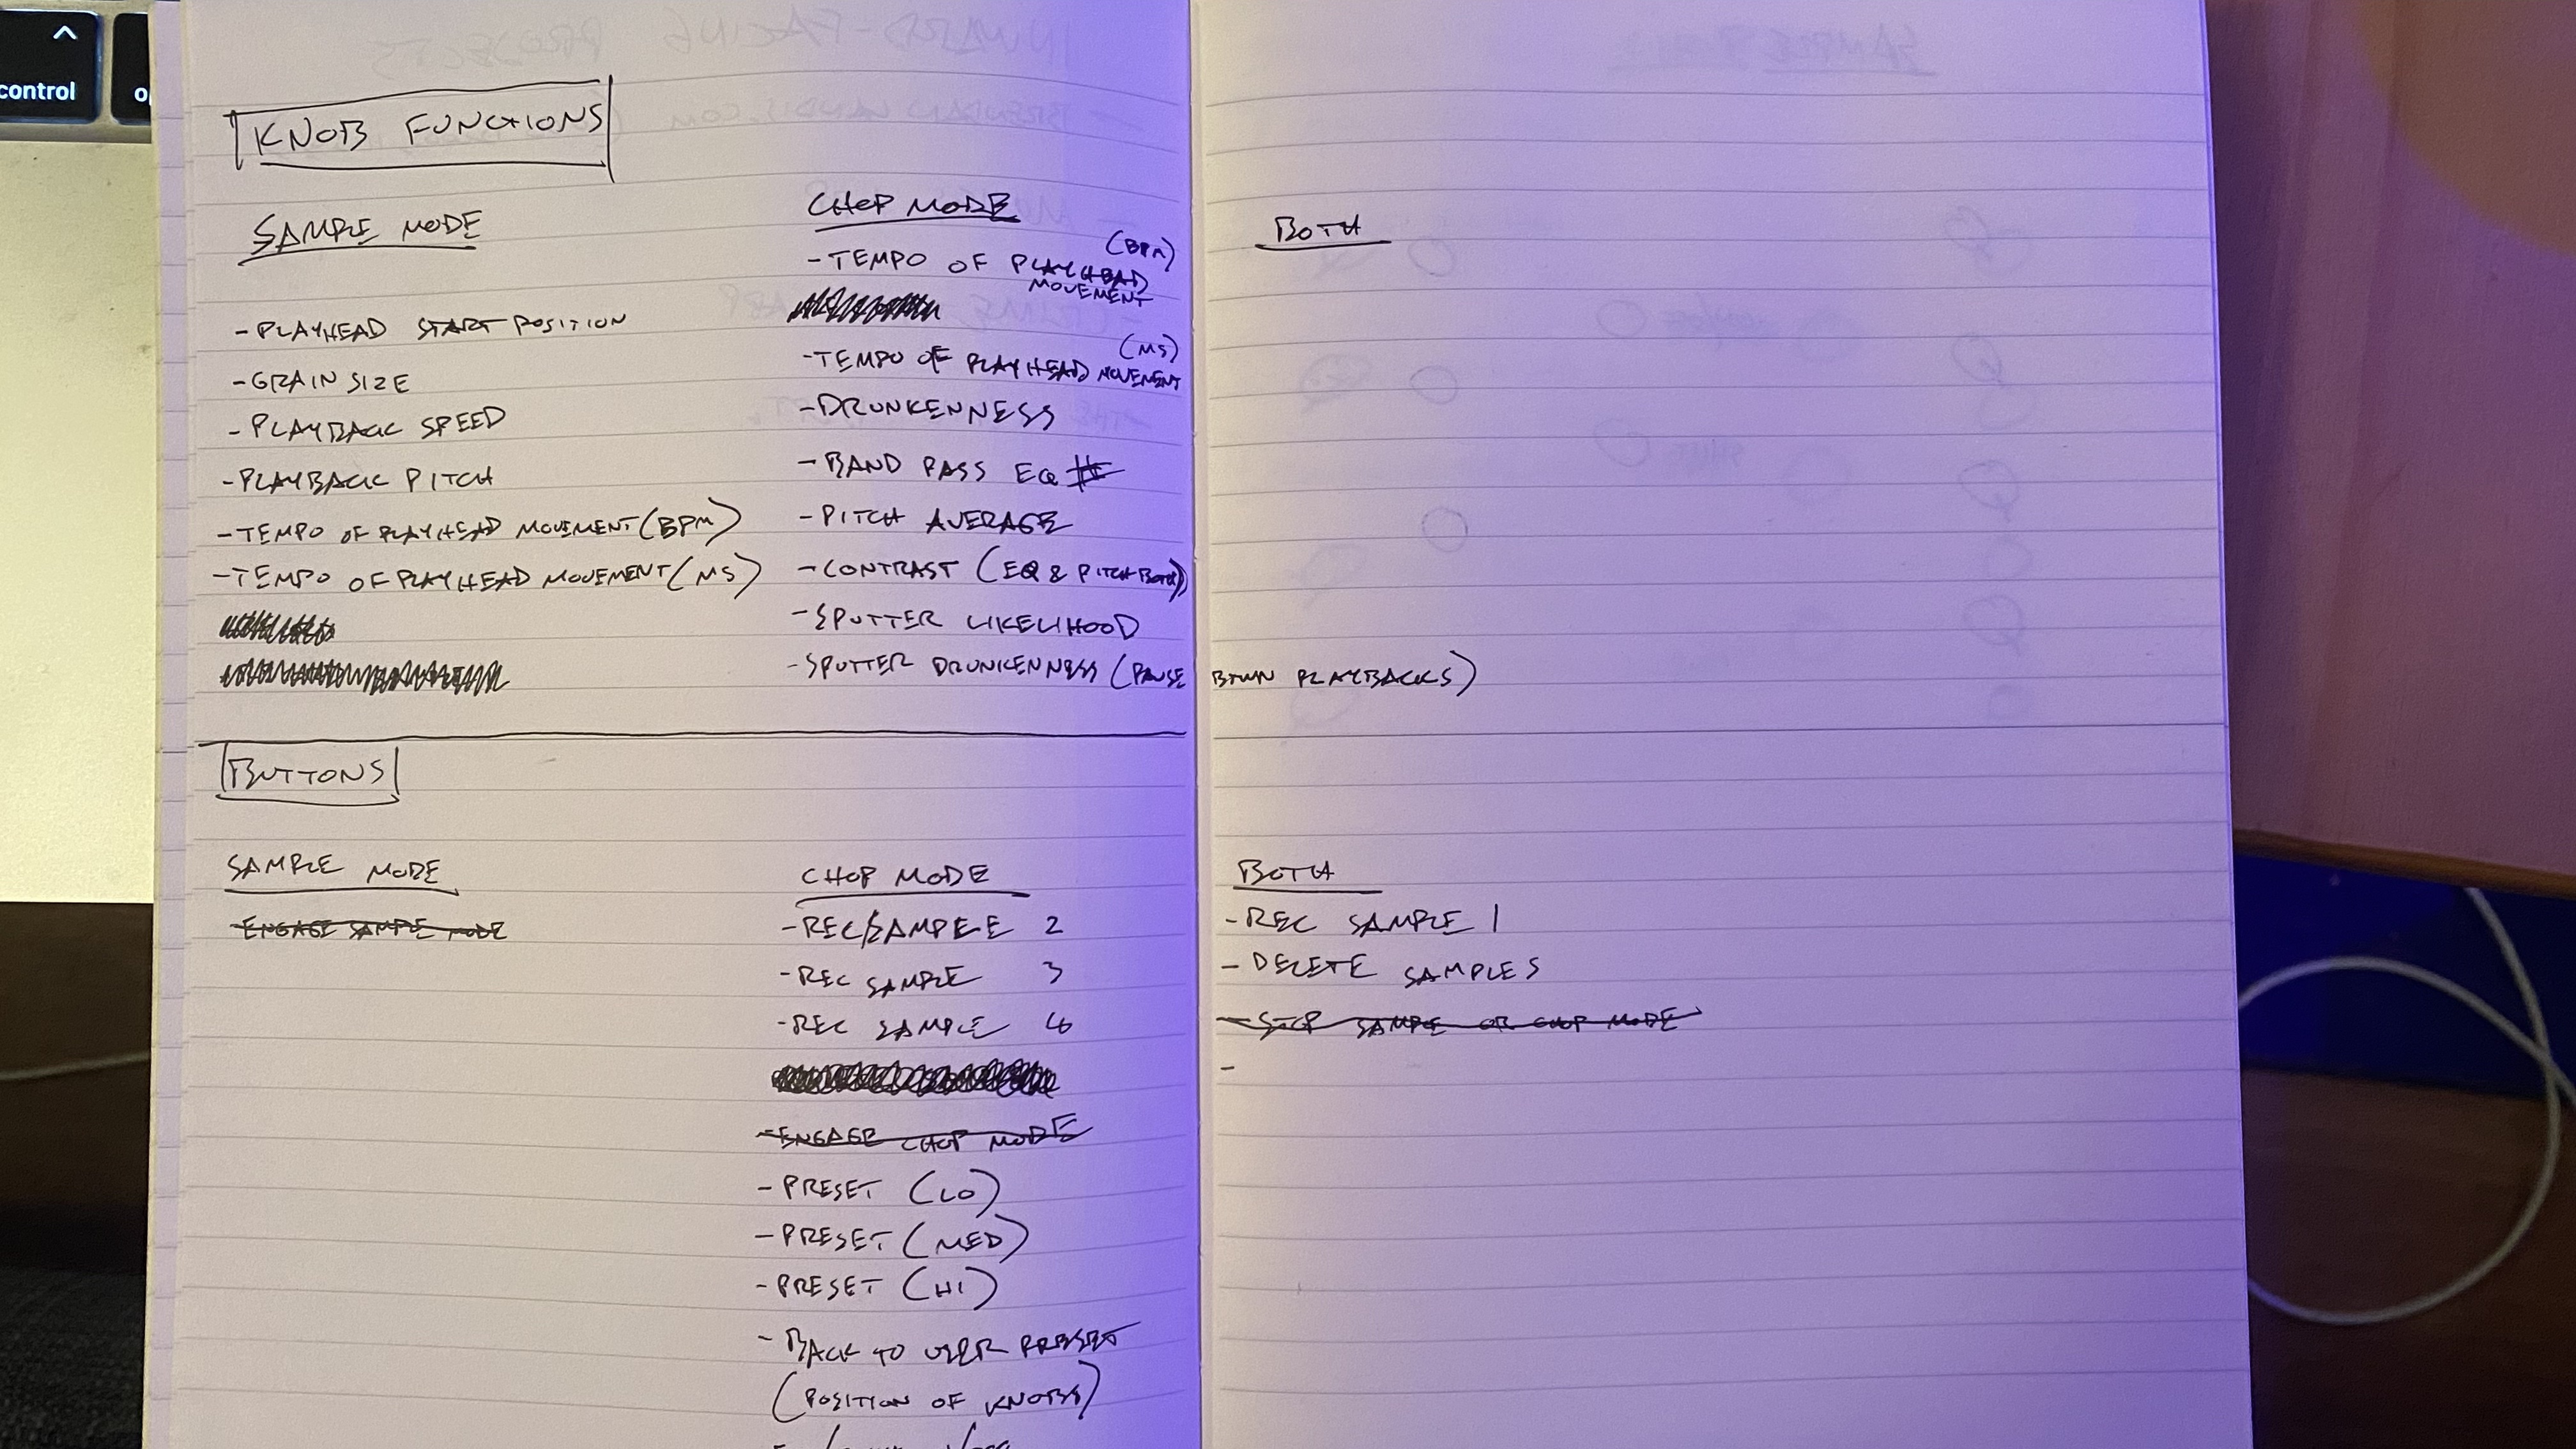 control
KNOB FUNCTIONS
SAMPLE MODE
- PLAYHEAD START POSITION
- GRAIN SIZE
- PLAYBACK SPEED
- PLAYBACK PITCH
- TEMPO OF PLAYHEAD MOVEMENT (BPM)
- TEMPO OF PLAYHEAD MOVEMENT (MS)
CHOP MODE
- TEMPO OF PLAYHEAD (BPM)
MOVEMENT
- TEMPO OF PLAYHEAD MOVEMENT (MS)
- DRUNKENNESS
- BAND PASS EQ
- PITCH AVERAGE
- CONTRAST (EQ & PITCH BOTH)
- SPUTTER LIKELIHOOD
- SPUTTER DRUNKENNESS (PAUSE BTWN PLAYBACKS)
BOTH
BUTTONS
SAMPLE MODE
- ENGAGE SAMPLE MODE
CHOP MODE
- REC SAMPLE 2
- REC SAMPLE 3
- REC SAMPLE 4
- ENGAGE CHOP MODE
- PRESET (LO)
- PRESET (MED)
- PRESET (HI)
- BACK TO USER PRESET
(POSITION OF KNOBS)
BOTH
- REC SAMPLE 1
- DELETE SAMPLES
- STOP SAMPLE OR CHOP MODE
-